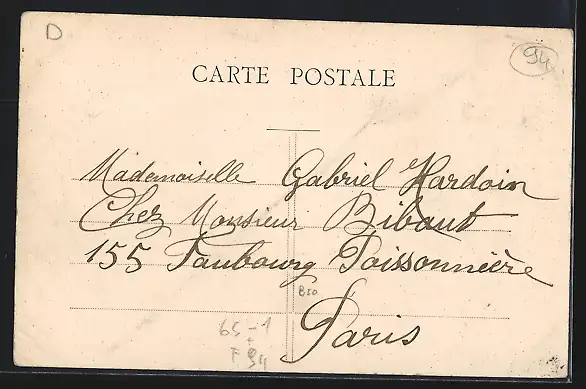 D
94
CARTE POSTALE
Mademoiselle Gabriel Hardoin
Chez Monsieur Bibaut
155 Faubourg Poissonnière
B50
Paris
65-1
+
F 94